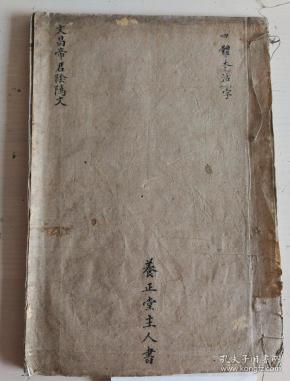 四體木活字
文昌帝君陰隲文
養正堂主人書
孔夫子旧书网